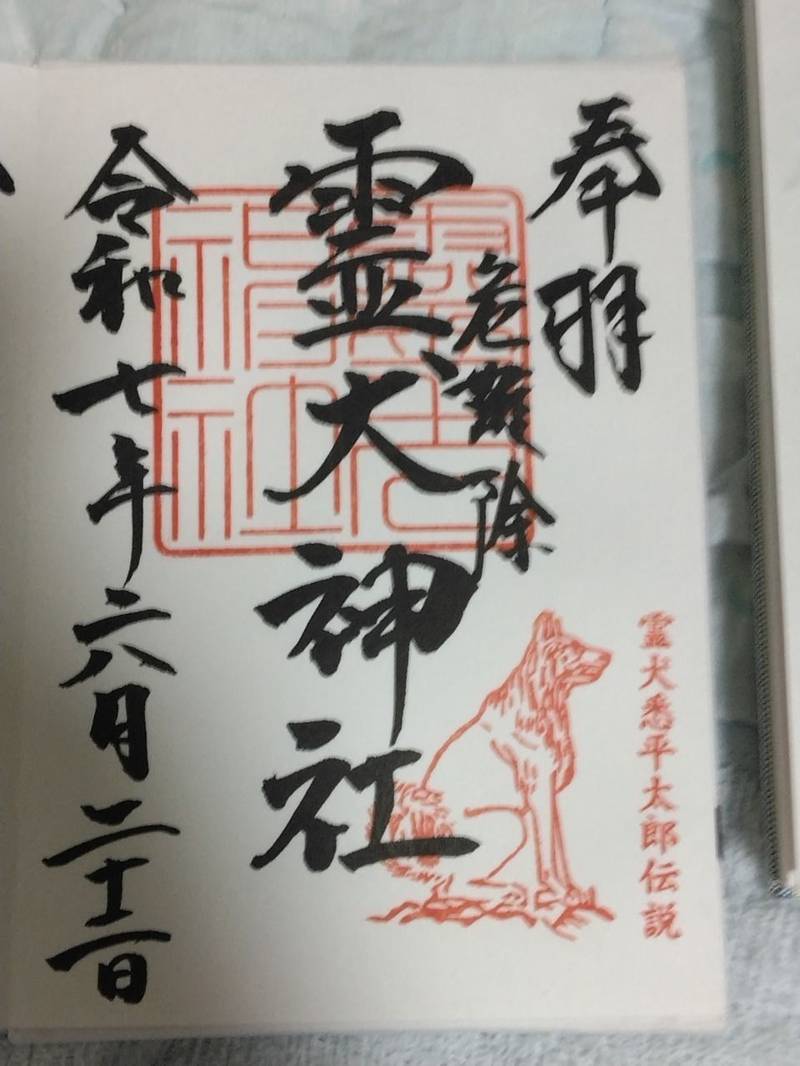 奉拝
危難除
霊犬神社
令和七年六月二十二日
霊犬悉平太郎伝説